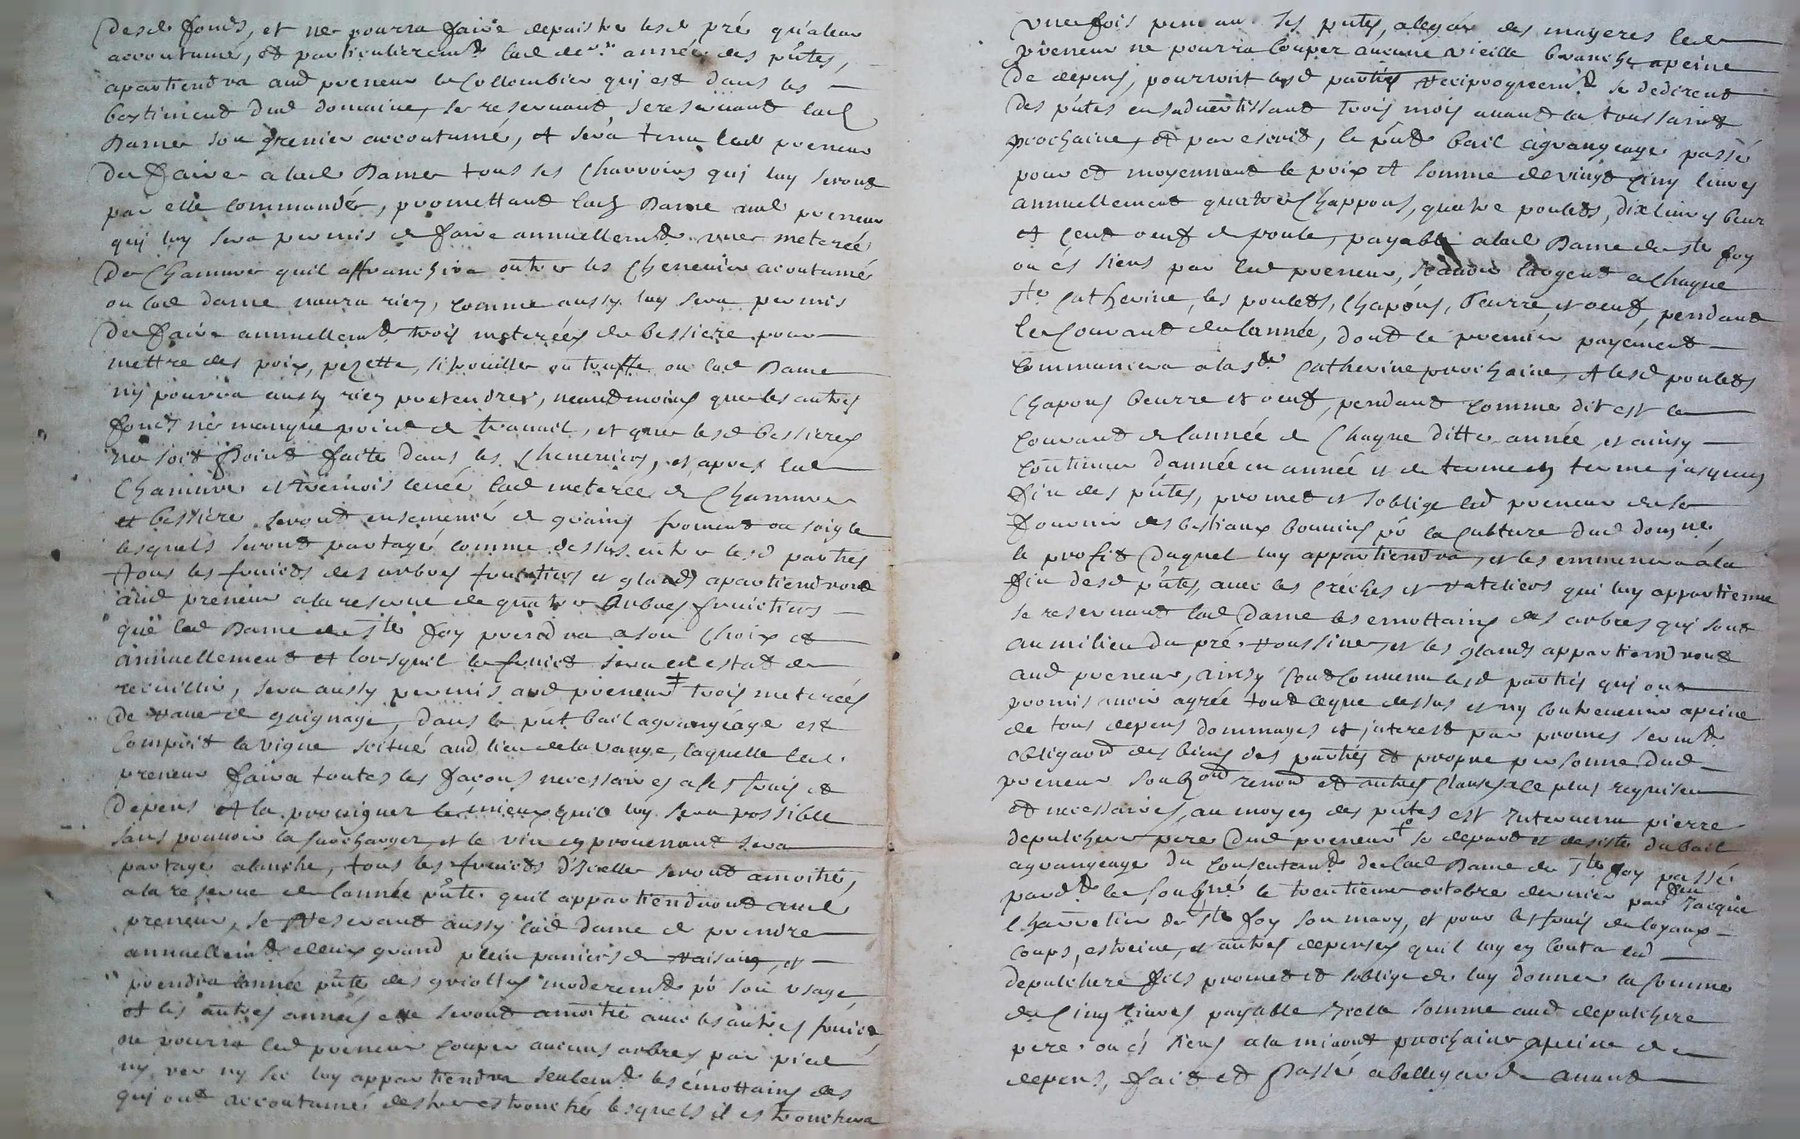 desd fonds, et ne pourra faire depaistre lesd pré qu'aleur
accoutumé, et particulieremt lad derre année des pntes,
apartiendra aud preneur le Collombier qui est dans les
bastiment dud domaine, se reservant sereservant lad
Dame son grenier accoutumé, et sera tenu led preneur
De faire a lad Dame tous les Charroirs qui luy seront
par elle commandés, promettant lad Dame aud preneur
qui luy sera permis de faire annuellemt une meterée
De Chanvre quil affranchira outre les Chenevier acoutumé
ou lad dame naura rien, comme aussy luy sera permis
De faire annuellemt trois meterées de bessiere pour
mettre des poix, pezette, ou truffe ou lad Dame
ny pourra aussy rien pretendre, neantmoins que les autres
fonds ne manque point de travail, et que lesd bessieres
ne soit point faite dans les Cheneviers, et apres lad
Chanvre et tremois levée lad meterée de Chanvre
et bessiere seront ensemencé de grains froment ou soigle
lesquels seront partagé comme dessus entre lesd parties
tous les fruicts des arbres fruictiers et glands apartiendront
aud preneur a la reserve de quatre arbres fruictiers
que lad Dame de Ste foy prendra a son choix et
annuellement et lorsquil le fruict sera en estat de
receuillir, sera aussy permis aud preneur ‡ trois meterées
De rave de gaignage, dans le pnt bail agrangéage est
Compris la vigne scitué aud lieu de la vange, laquelle led
preneur faira toutes les façons necessaires a ses frais et
Depens et la provigner le mieux quil luy sera possible
sans pouvoir la surcharger, et le vin en provenant sera
partagé alanche, tous les fruicts d'Icelle seront amoitié,
a la reserve de lannée pnte quil appartiendront aud
preneur, se Reservant aussy lad dame de prendre
annuellemt deux grand plein paniers de raisains, et
prendra lannée pnte des griottes moderemt pr son usage
et les autres années elle seront amoitié avec les autres fruict,
ne pourra led preneur couper aucuns arbres par pied
ny ver ny sec luy appartiendra seulemt les émottains des
qui ont accoutumé destre estronché lesquels il estronchera
une fois pendant les pntes, alegard des mayeres led
preneur ne pourra couper aucune vieille branche apeine
De depens, pourront lesd parties Reciproquemt se dedirent
Des pntes en sadvertissant trois mois avant la toussaint
prochaine, et par escrit, le pnt bail agrangeage passé
pour et moyennant le prix et somme de vingt cinq livres
annuellement quatre Chappons, quatre poulets, dix livres beur
et cent oeuf de poule, payable a lad Dame de Ste foy
ou és siens par led preneur, scavoir largent a chaque
Ste catherine, les poulets, Chapons, beurre, et oeuf, pendant
le Courant de lannée, dont le premier payement
Commancera a la Ste catherine prochaine, et lesd poulets
Chapons beurre et oeuf, pendant comme dit est le
Courant de lannée de Chaque ditte année, et ainsy
Continuer dannée en année et de terme en terme jusquen
fin des pntes, promet et soblige led preneur de se
Fournir des bestiaux bouvins pr la culture dud domne,
le profit duquel luy appartiendra, et les emmenera a la
fin desd pntes, avec les créches et rateliers qui luy appartienne
se reservant lad Dame les emottains des arbres qui sont
au milieu du pré, et les glands appartiendront
aud preneur, ainsy Convenu lesd parties qui ont
promis avoir agrée tout ceque dessus et ny contrevenir apeine
de tous depens dommages et jnterest par promes sermt
obligaon des biens des parties et propre personne dud
preneur soubzon renon et autres Clauses le plus requises
et necessaires, au moyen des pntes est Intervenu pierre
depulchere pere dud preneur ‡ se depart et desiste du bail
agrangeage du Consentemt de lad Dame de Ste foy passé
pardt le sousné le trentieme octobre dernier par feu Jacque
Charretier de Ste foy son mary, et pour les frais de loyaux
coups, estreine, et autres depenses quil luy en couta led
depulchere fils promet et soblige de luy donner la somme
de Cinq livres payable Icelle somme aud depulchere
pere, ou és siens a la micaut prochaine apeine de
depens, fait et Passé a bellegarde avant